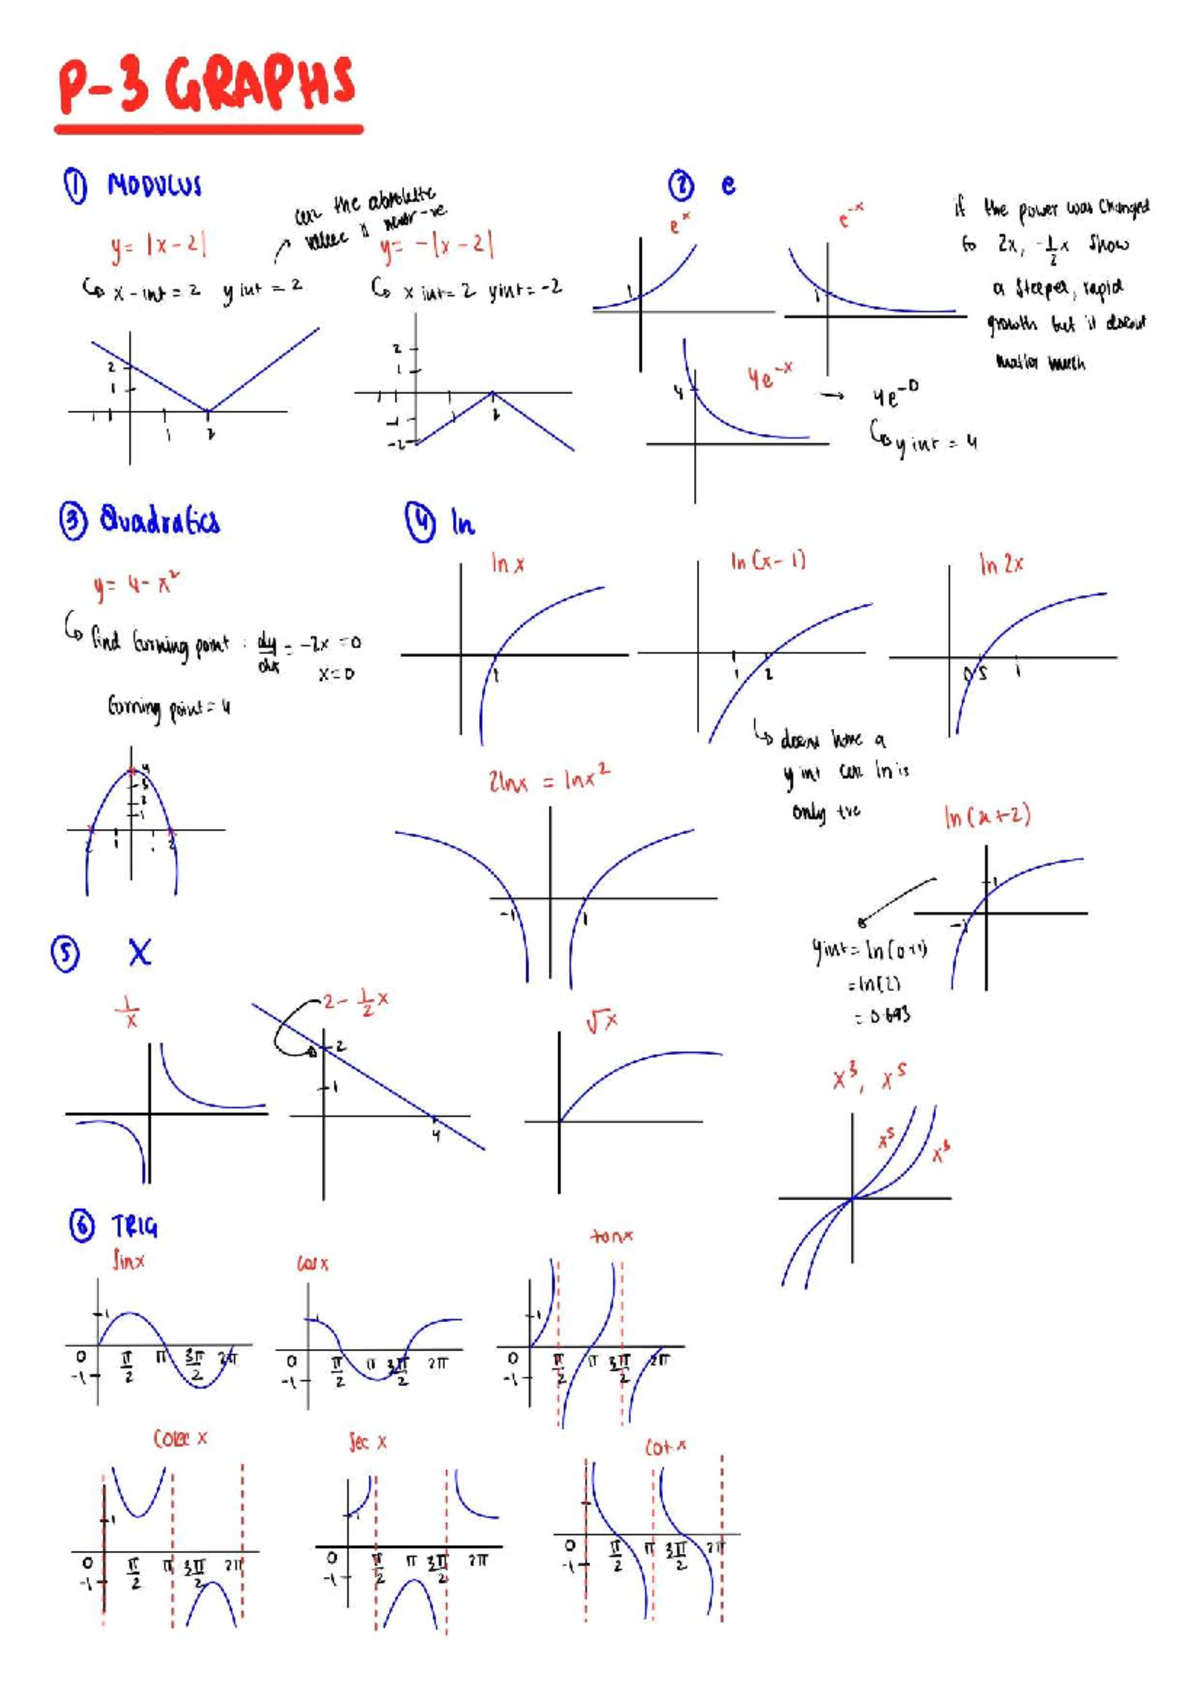 P-3 GRAPHS
① MODULUS
cuz the absolute
value is never -ve
y = |x-2|
↳ x-int = 2 y int = 2
y = -|x-2|
↳ x int = 2 yint = -2
2
1
1
2
2
1
-1
-2
1
2
② e
e^x
1
e^-x
1
if the power was changed
to 2x, -1/2 x show
a steeper, rapid
growth but it doesnt
matter much
4e^-x → 4e^-0
↳ y int = 4
4
③ Quadratics
y = 4 - x²
↳ find turning point : dy/dx = -2x = 0
x = 0
turning point = 4
4
3
2
1
2 1 1 2
④ ln
ln x
1
ln(x-1)
1 2
↳ doesnt have a
y int cuz ln is
only +ve
ln 2x
0.5 1
2lnx = lnx²
-1 1
ln(x+2)
1
-1
yint = ln(0+2)
= ln(2)
= 0.693
⑤ X
1/x
2 - 1/2 x
2
1
4
√x
x³, x⁵
x⁵
x³
⑥ TRIG
sinx
1
0 π/2 π 3π/2 2π
-1
cosx
1
0 π/2 π 3π/2 2π
-1
tanx
1
0 π/2 π 3π/2 2π
-1
Cosec x
1
0 π/2 π 3π/2 2π
-1
Sec x
1
0 π/2 π 3π/2 2π
-1
Cot x
0 π/2 π 3π/2 2π
-1